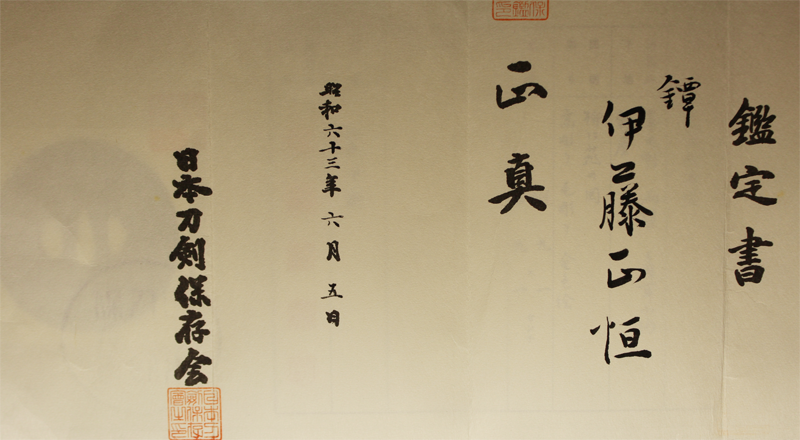 鑑定書
鐔
伊藤正恒
正真
昭和六十三年六月五日
日本刀剣保存会